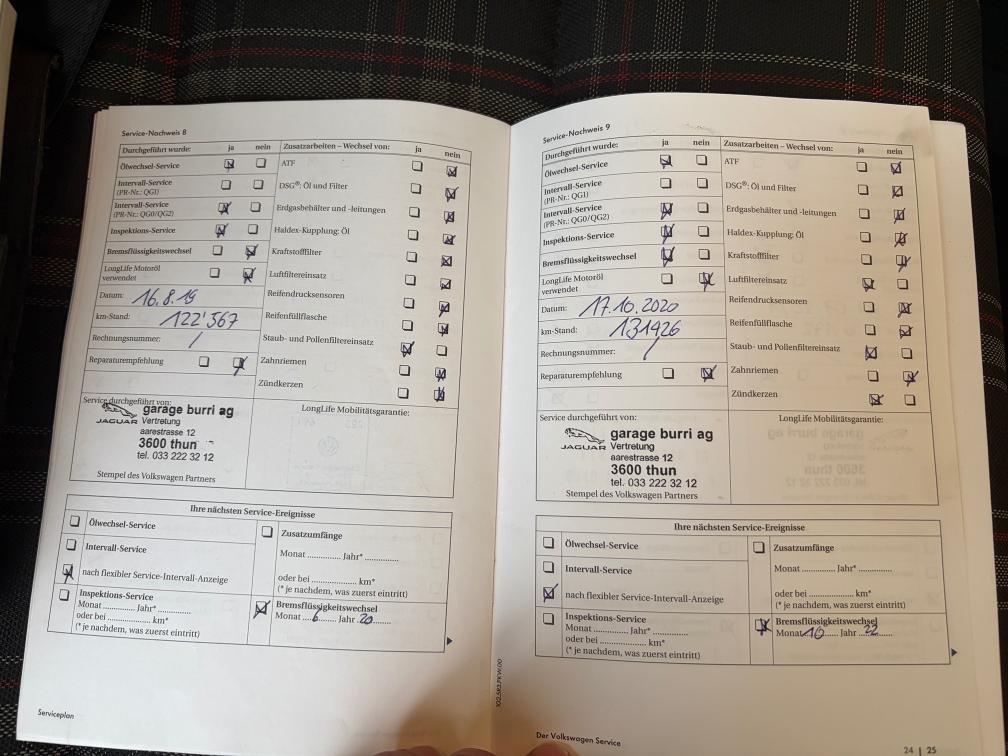 Service-Nachweis 8
Durchgeführt wurde: ja nein
Ölwechsel-Service
Intervall-Service
(PR-Nr.: QG1)
Intervall-Service
(PR-Nr.: QG0/QG2)
Inspektions-Service
Bremsflüssigkeitswechsel
LongLife Motoröl
verwendet
Datum: 16.8.19
km-Stand: 122'367
Rechnungsnummer: /
Reparaturempfehlung
Zusatzarbeiten – Wechsel von: ja nein
ATF
DSG®: Öl und Filter
Erdgasbehälter und -leitungen
Haldex-Kupplung: Öl
Kraftstofffilter
Luftfiltereinsatz
Reifendrucksensoren
Reifenfüllflasche
Staub- und Pollenfiltereinsatz
Zahnriemen
Zündkerzen
Service durchgeführt von:
JAGUAR
garage burri ag
Vertretung
aarestrasse 12
3600 thun
tel. 033 222 32 12
Stempel des Volkswagen Partners
LongLife Mobilitätsgarantie:
Ihre nächsten Service-Ereignisse
Ölwechsel-Service
Intervall-Service
nach flexibler Service-Intervall-Anzeige
Inspektions-Service
Monat .............. Jahr* ..............
oder bei .............. km*
(* je nachdem, was zuerst eintritt)
Zusatzumfänge
Monat .............. Jahr* ..............
oder bei .............. km*
(* je nachdem, was zuerst eintritt)
Bremsflüssigkeitswechsel
Monat 6 Jahr 20
Serviceplan
Service-Nachweis 9
Durchgeführt wurde: ja nein
Ölwechsel-Service
Intervall-Service
(PR-Nr.: QG1)
Intervall-Service
(PR-Nr.: QG0/QG2)
Inspektions-Service
Bremsflüssigkeitswechsel
LongLife Motoröl
verwendet
Datum: 17.10.2020
km-Stand: 131426
Rechnungsnummer: /
Reparaturempfehlung
Zusatzarbeiten – Wechsel von: ja nein
ATF
DSG®: Öl und Filter
Erdgasbehälter und -leitungen
Haldex-Kupplung: Öl
Kraftstofffilter
Luftfiltereinsatz
Reifendrucksensoren
Reifenfüllflasche
Staub- und Pollenfiltereinsatz
Zahnriemen
Zündkerzen
Service durchgeführt von:
JAGUAR
garage burri ag
Vertretung
aarestrasse 12
3600 thun
tel. 033 222 32 12
Stempel des Volkswagen Partners
LongLife Mobilitätsgarantie:
Ihre nächsten Service-Ereignisse
Ölwechsel-Service
Intervall-Service
nach flexibler Service-Intervall-Anzeige
Inspektions-Service
Monat .............. Jahr* ..............
oder bei .............. km*
(* je nachdem, was zuerst eintritt)
Zusatzumfänge
Monat .............. Jahr* ..............
oder bei .............. km*
(* je nachdem, was zuerst eintritt)
Bremsflüssigkeitswechsel
Monat 10 Jahr 22
Der Volkswagen Service
24 | 25